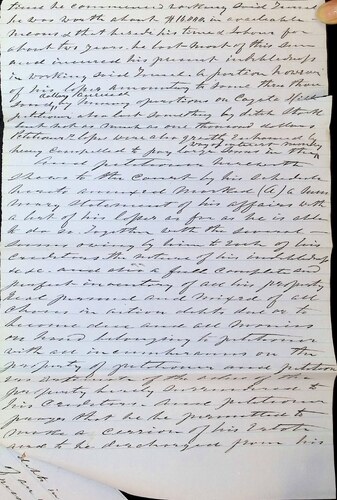 time he commenced working said Tunnel
he was worth about $10,000 in available
means that besides his time & labour for
about two years he lost most of this sum
and incurred his present indebtedness
in working said Tunnel. A portion however
of his losses amounting to some three thou
sand, by mining operations on Coyote Hill
petitioner also lost something by ditch stock
but not as much as one thousand dollars
Petitioners losses were also greatly enhanced by
being compelled to pay large sums in the
way of interest money
And petitioner herewith
shows to the Court by his Schedule
hereto annexed marked (A) a Sum
mary Statement of his affairs with
a list of his losses as far as he is able
to do so Together with the several
sums owing by him to each of his
Creditors the nature of his indebtedness
&c &c. and also a full complete and
perfect inventory of all his property
real personal and mixed of all
choses in action debts due or to
become due and all monies
on hand belonging to petitioner
with all incumbrances on the
property of petitioner and petition
property hereby surrendered to
his Creditors And petitioner
prays that he be permitted to
make a cession of his Estate
and to be discharged from his